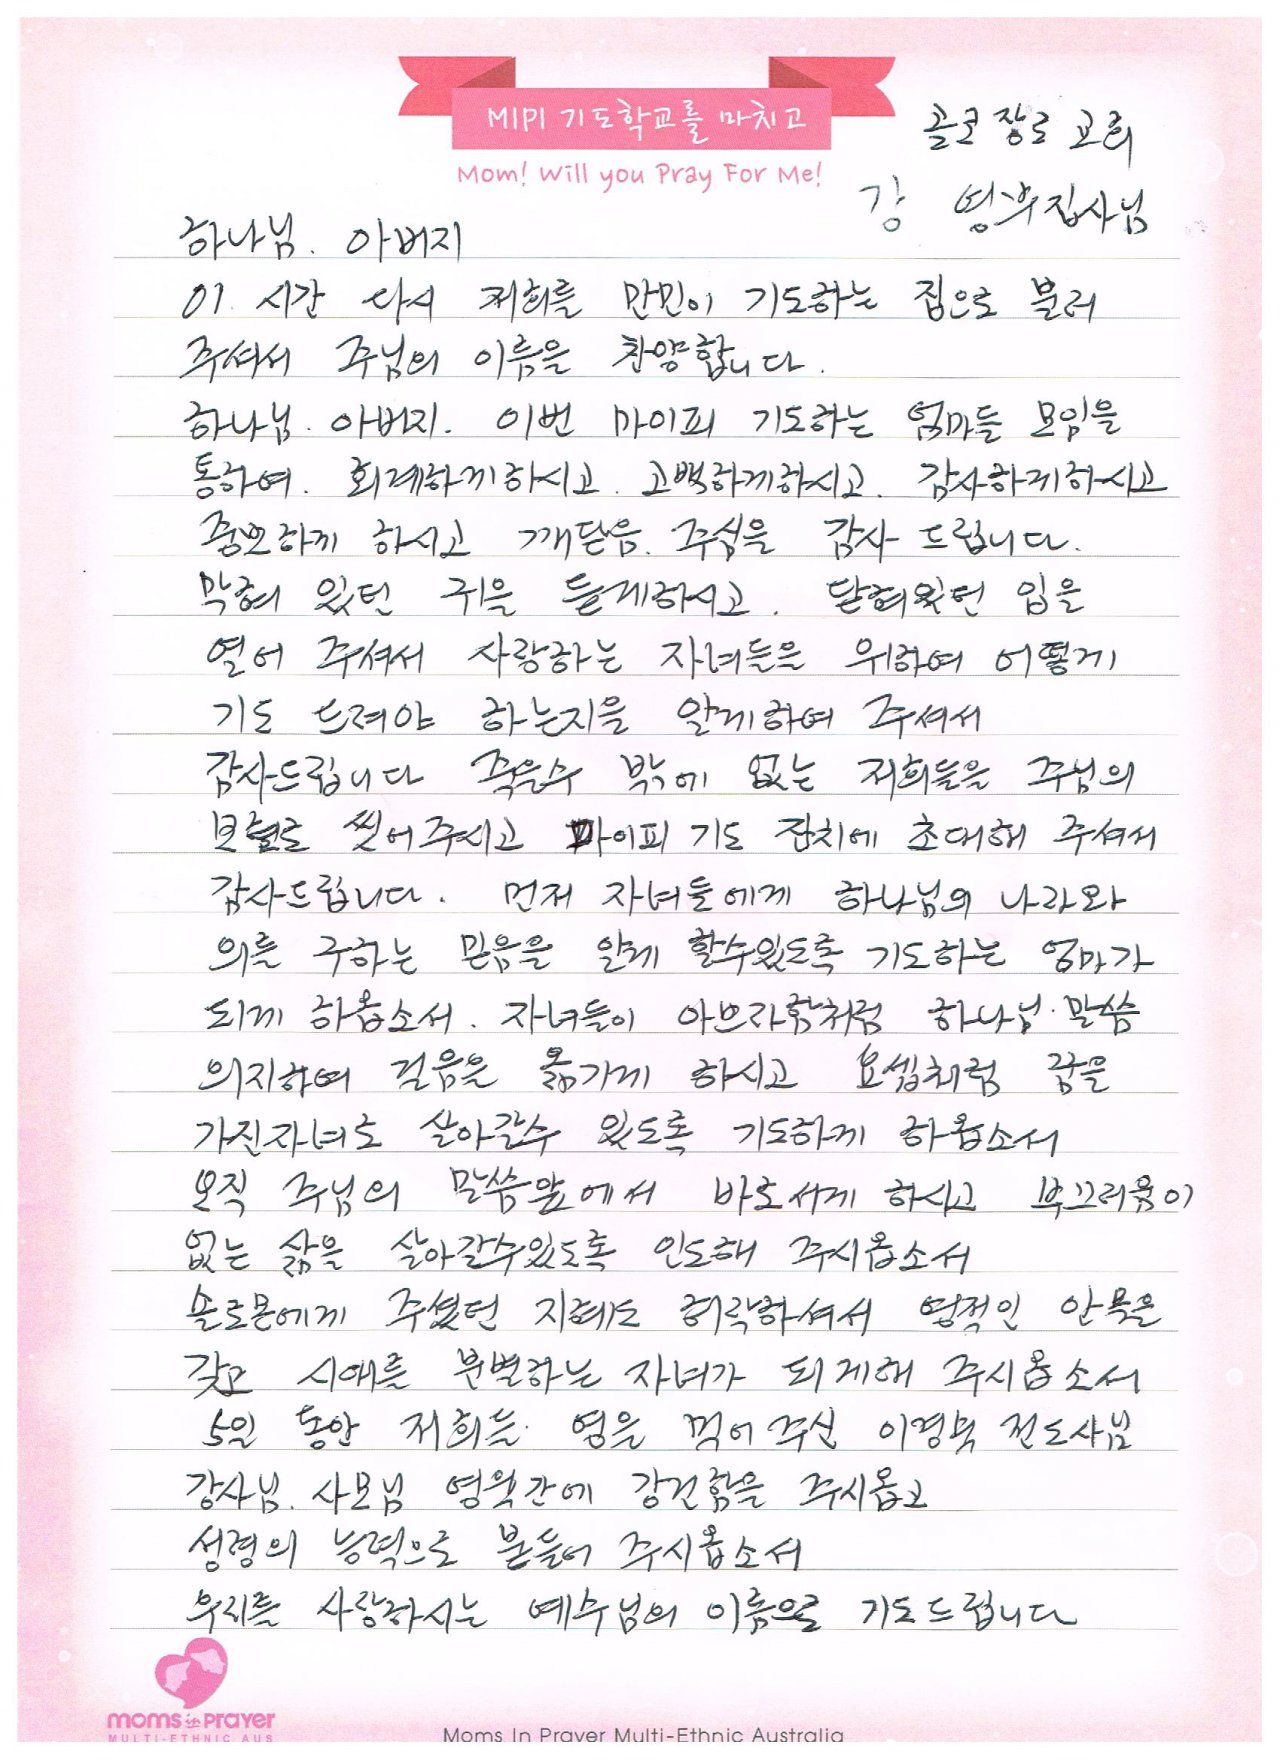 MIPI 기도학교를 마치고
Mom! Will you Pray For Me!
골코 장로 교회
강 영우집사님
하나님. 아버지
이 시간 다시 저희를 만민이 기도하는 집으로 불러
주셔서 주님의 이름을 찬양합니다.
하나님. 아버지. 이번 마이피 기도하는 엄마들 모임을
통하여. 회계하게하시고. 고백하게하시고. 감사하게하시고
중보하게 하시고 깨닫음. 주심을 감사 드립니다.
막혀 있던 귀을 듣게하시고. 닫혀있던 입을
열어 주셔서 사랑하는 자녀들을 위하여 어떻게
기도 드려야 하는지을 알게하여 주셔서
감사드립니다 죽을수 밖에 없는 저희들을 주님의
보혈로 씻어주시고 마이피 기도 잔치에 초대해 주셔서
감사드립니다. 먼저 자녀들에게 하나님의 나라와
의를 구하는 믿음을 알게 할수있도록 기도하는 엄마가
되게 하옵소서. 자녀들이 아브라함처럼 하나님. 말씀
의지하여 걸음을 옮기게 하시고 요셉처럼 꿈을
가진자녀로 살아갈수 있도록 기도하게 하옵소서
오직 주님의 말씀앞에서 바로서게 하시고 부끄러움이
없는 삶을 살아갈수있도록 인도해 주시옵소서
솔로몬에게 주셨던 지혜도 허락하셔서 영적인 안목을
갖고 시애를 분별하는 자녀가 되게해 주시옵소서
5일 동안 저희들. 영을 먹여주신 이경묵 전도사님
강사님. 사모님 영육간에 강건함을 주시옵고
성령의 능력으로 붇들어 주시옵소서
우리를 사랑하시는 예수님의 이름으로 기도드립니다
moms in prayer
MULTI-ETHNIC AUS
Moms In Prayer Multi-Ethnic Australia